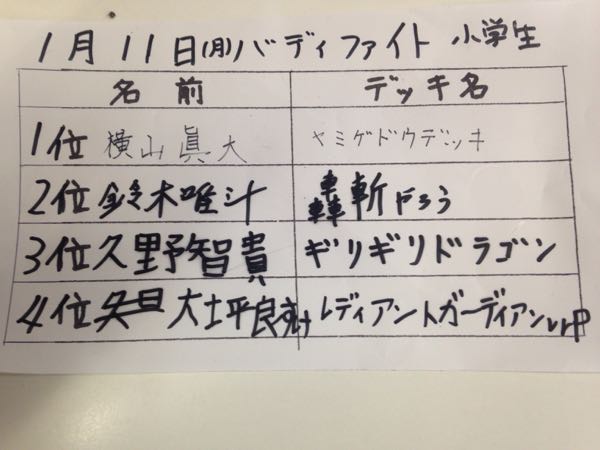 1月11日(月)バディファイト 小学生
名前 デッキ名
1位 横山眞大 ヤミゲドウデッキ
2位 鈴木唯斗 轟斬だろう
3位 久野智貴 ギリギリドラゴン
4位 大土平良すけ レディアントガーディアン